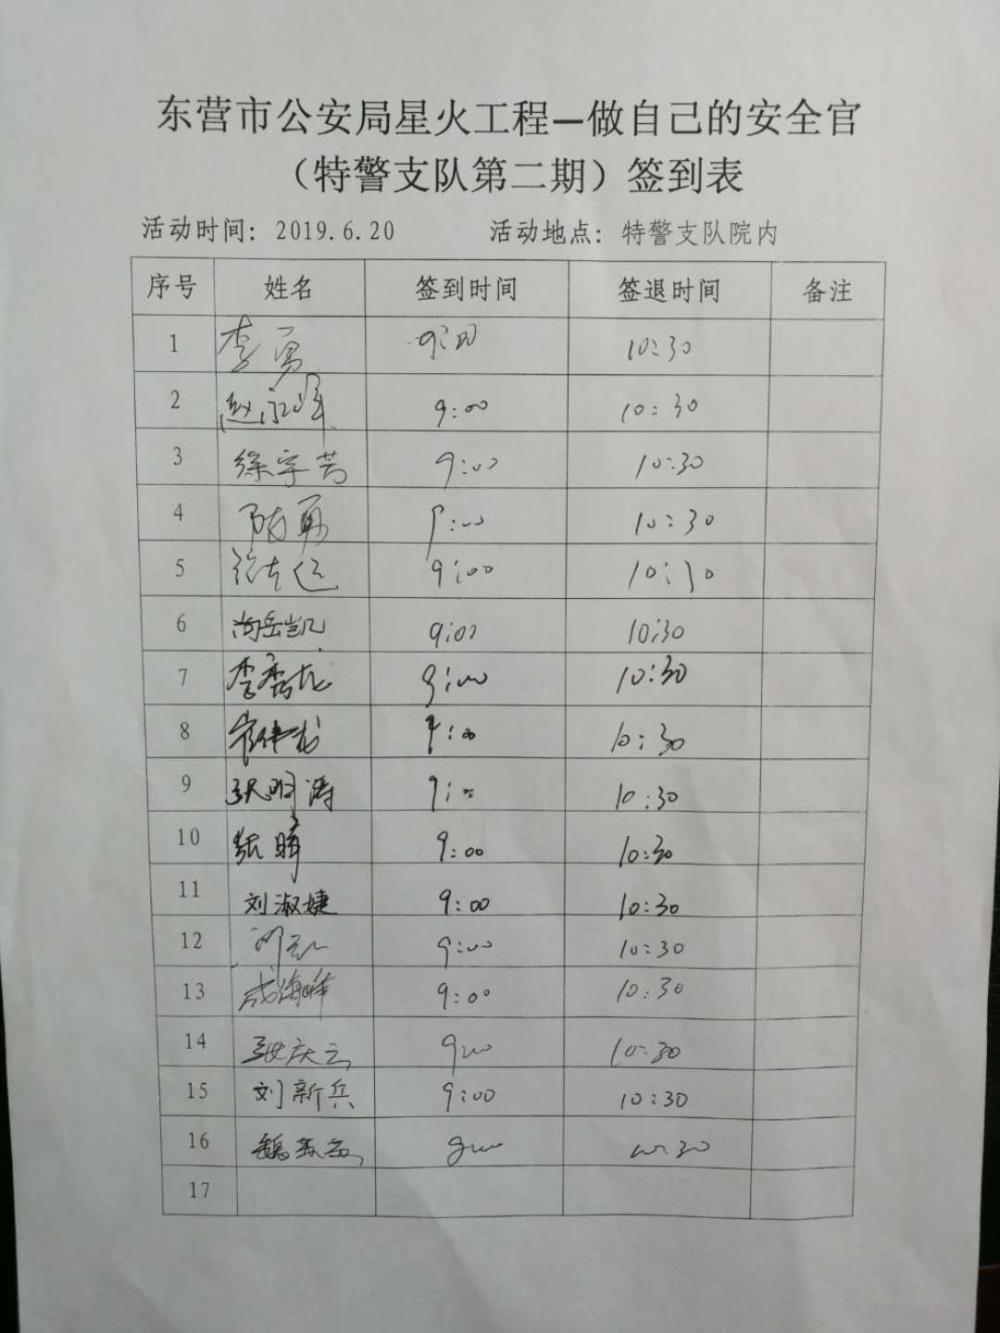 东营市公安局星火工程—做自己的安全官
（特警支队第二期）签到表
活动时间: 2019.6.20 活动地点: 特警支队院内
序号 姓名 签到时间 签退时间 备注
1 李勇 9:00 10:30
2 赵永峰 9:00 10:30
3 徐宇芳 9:00 10:30
4 陈勇 9:00 10:30
5 9:00 10:30
6 尚岳凯 9:00 10:30
7 李秀龙 9:00 10:30
8 9:00 10:30
9 张明涛 9:00 10:30
10 张晖 9:00 10:30
11 刘淑婕 9:00 10:30
12 9:00 10:30
13 成海峰 9:00 10:30
14 张庆云 9:00 10:30
15 刘新兵 9:00 10:30
16 9:00 10:30
17